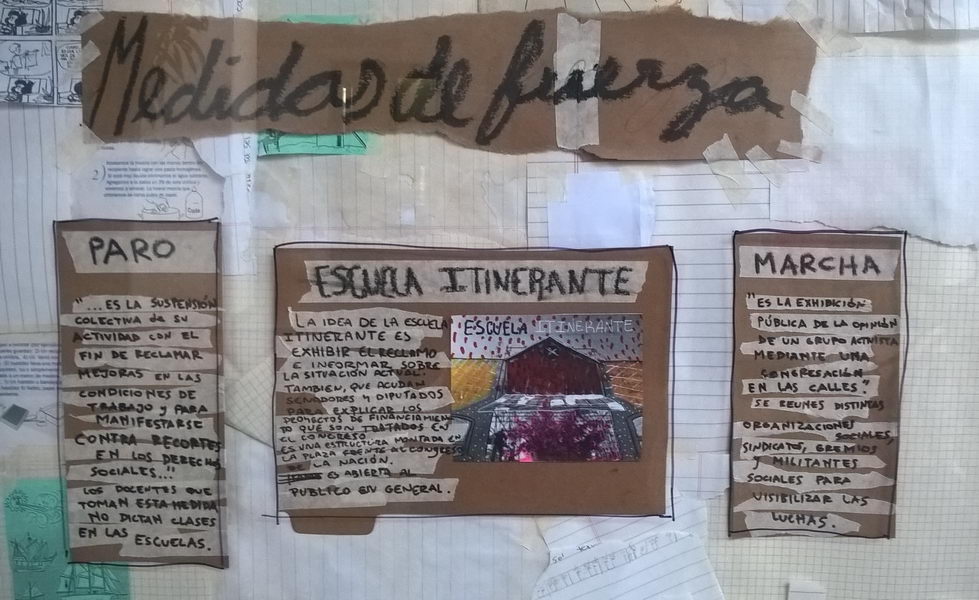 Medidas de fuerza
PARO
"... ES LA SUSPENSIÓN
COLECTIVA de SU
ACTIVIDAD CON EL
FIN DE RECLAMAR
MEJORAS EN LAS
CONDICIONES DE
TRABAJO y PARA
MANIFESTARSE
CONTRA RECORTES
EN LOS DERECHOS
SOCIALES..."
LOS DOCENTES QUE
TOMAN ESTA MEDIDA
NO DICTAN CLASES
EN LAS ESCUELAS.
ESCUELA ITINERANTE
LA IDEA DE LA ESCUELA
ITINERANTE ES
EXHIBIR EL RECLAMO
E INFORMAR SOBRE
LA SITUACIÓN ACTUAL.
TAMBIEN, QUE ACUDAN
SENADORES Y DIPUTADOS
PARA EXPLICAR LOS
PROYECTOS DE FINANCIAMIENTO
QUE SON TRATADOS EN
EL CONGRESO.
ES UNA ESTRUCTURA MONTADA EN
LA PLAZA FRENTE AL CONGRESO
DE LA NACIÓN.
ES ABIERTA AL
PUBLICO EN GENERAL.
ESCUELA ITINERANTE
MARCHA
"ES LA EXHIBICIÓN
PÚBLICA DE LA OPINIÓN
DE UN GRUPO ACTIVISTA
MEDIANTE UNA
CONGREGACIÓN
EN LAS CALLES."
SE REUNES DISTINTAS
ORGANIZACIONES
SOCIALES,
SINDICATOS, GREMIOS
y MILITANTES
SOCIALES PARA
VISIBILIZAR LAS
LUCHAS.